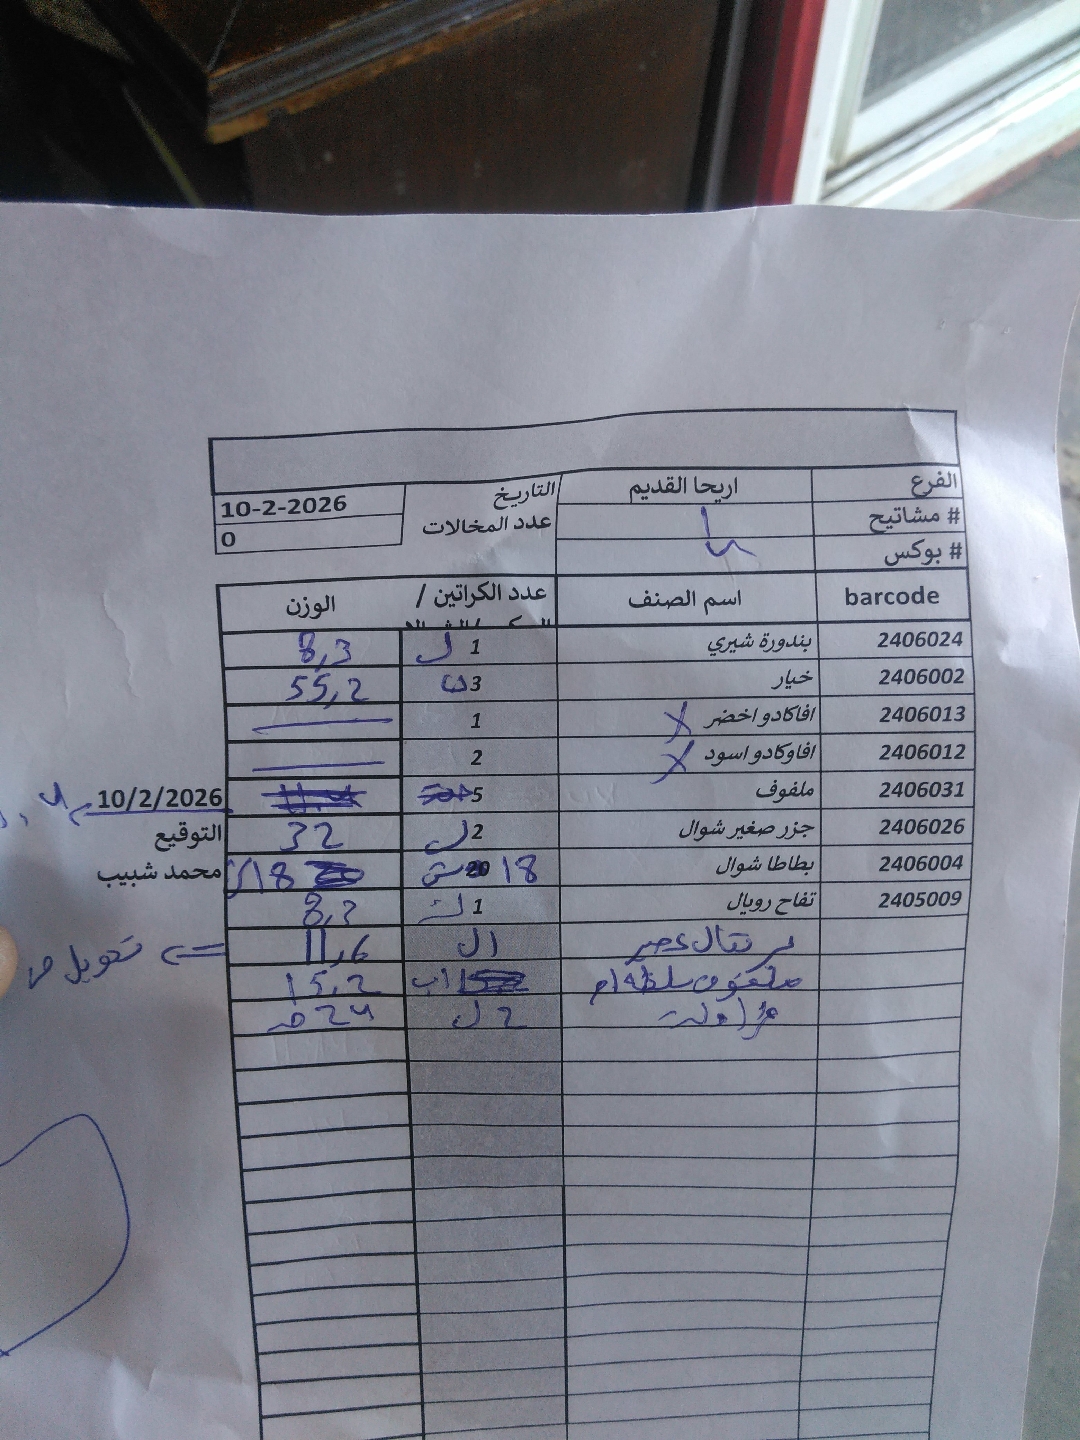 الفرع اريحا القديم التاريخ 10-2-2026
# مشاتيح عدد المخالات 0
# بوكس
barcode اسم الصنف عدد الكراتين / الوزن
2406024 بندورة شيري 1 ل 8,3
2406002 خيار 3 55,2
2406013 افاكادو اخضر X 1
2406012 افاوكادو اسود X 2
2406031 ملفوف 5 10/2/2026
2406026 جزر صغير شوال 2 ل 32 التوقيع
2406004 بطاطا شوال 18 20 18 محمد شبيب
2405009 تفاح رويال 1 8,2
برتقال عصير 1 ل 11,6
ملفوف سلطة 15,2
2 ل 24